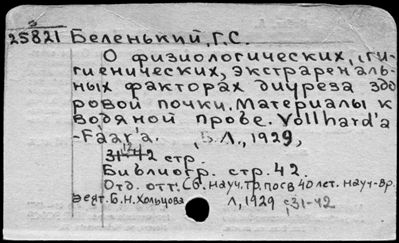 3
25821 Беленький, Г.С.
О физиологических, гиги-
гиенических, экстрареналь-
ных факторах диуреза здо-
ровой почки. Материалы к
водяной пробе. Vollhard'a
-Faar'a. Л., 1929,
31-42 стр.
Библиогр. стр. 42.
Отд. отт.: Сб. науч. тр. посв. 40 лет. науч-вр.
деят. Б.Н. Хольцова Л, 1929 с31-42